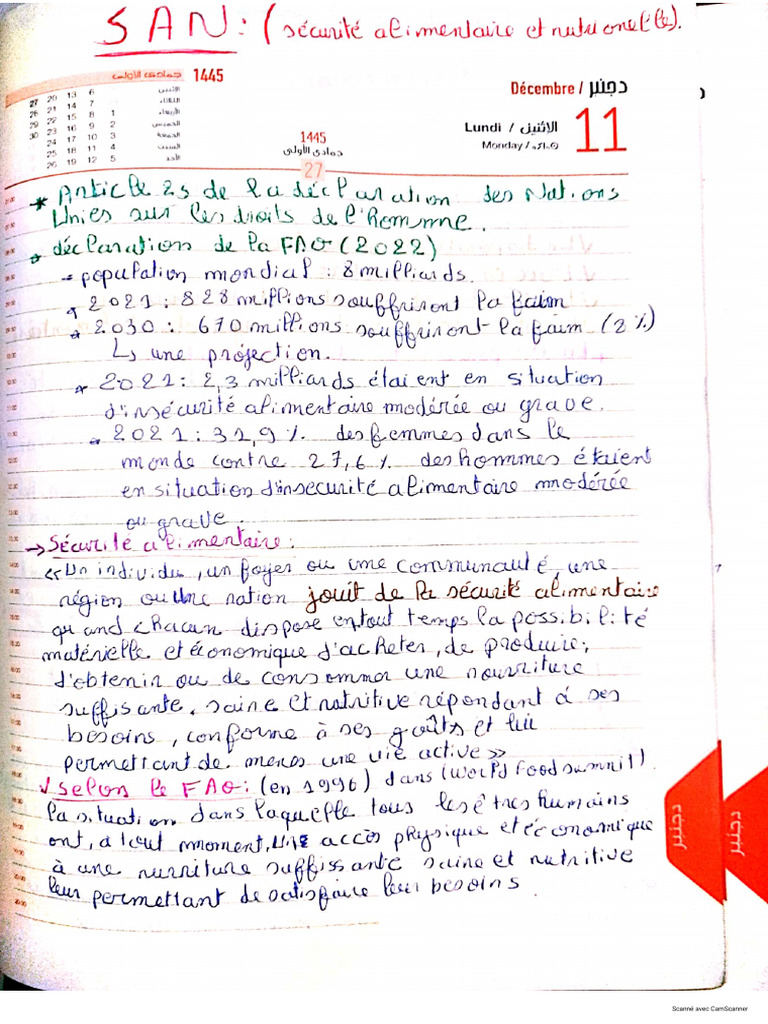 SAN: (sécurité alimentaire et nutrionelle).
جمادى الأولى 1445
27 20 13 6 الاثنين
28 21 14 7 الثلاثاء
29 22 15 8 1 الأربعاء
30 23 16 9 2 الخميس
24 17 10 3 الجمعة
25 18 11 4 السبت
26 19 12 5 الأحد
Décembre / دجنبر
Lundi / الإثنين
Monday /
11
1445
جمادى الأولى
27
* Article 25 de la déclaration des Nations
Unies sur les droits de l'homme.
* déclarations de la FAO (2022)
= population mondial : 8 milliards.
* 2021 : 828 millions souffriront la faim
* 2030 : 670 millions souffriront la faim (8%)
↳ une projection.
* 2021 : 2,3 milliards étaient en situation
d'insécurité alimentaire modérée ou grave.
* 2021 : 31,9 % des femmes dans le
monde contre 27,6 % des hommes étaient
en situation d'insecurité alimentaire modérée
ou grave.
→ Sécurité alimentaire :
<< Un individu, un foyer ou une communauté, une
région ou une nation jouit de la sécurité alimentaire
quand chacun dispose en tout temps la possibilité
matérielle et économique d'acheter, de produire,
d'obtenir ou de consommer une nourriture
suffisante, saine et nutritive répondant à ses
besoins, conforme à ses goûts et lui
permettant de menes une vie active >>
√ Selon le FAO : (en 1996) dans (World Food summit).
la situation dans laquelle tous les êtres humains
ont, à tout moment, une accès physique et économique
à une nurriture suffissante saine et nutritive
leur permettant de satisfaire leur besoins.
دجنبر
دجنبر
Scanné avec CamScanner